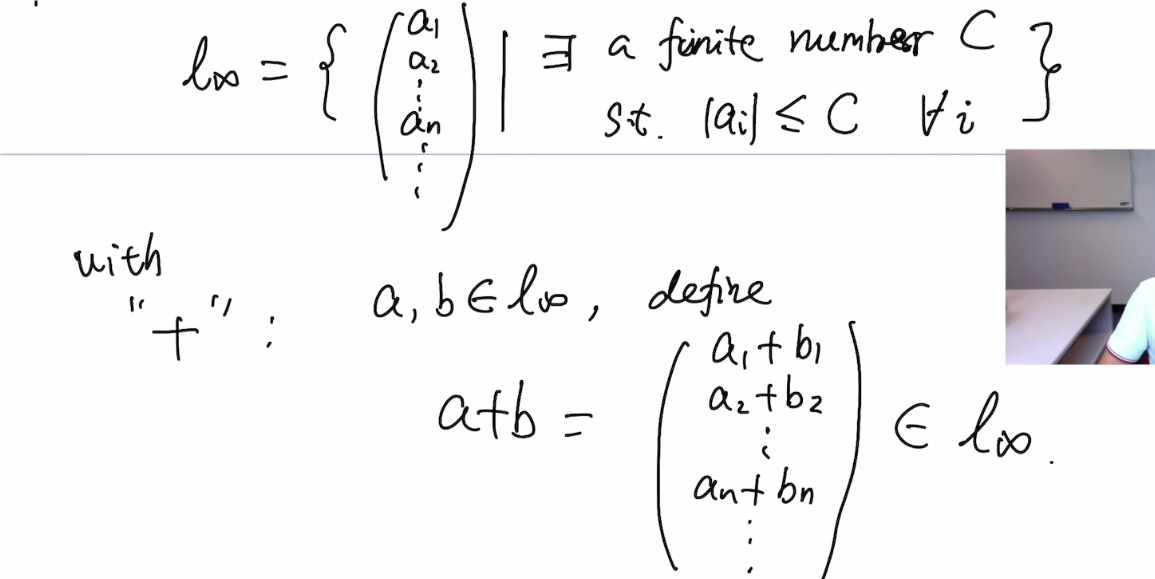 l∞ = { ( a1 a2 ⋮ an ⋮ ) | ∃ a finite number C
s.t. |ai| ≤ C ∀i }
with
"+" : a, b ∈ l∞, define
a+b = ( a1+b1 a2+b2 ⋮ an+bn ⋮ ) ∈ l∞.